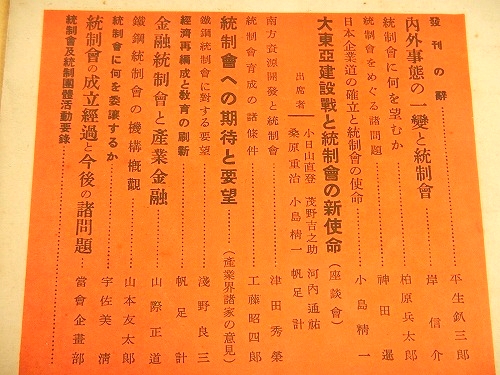 發刊の辭……平生釟三郎
內外事態の一變と統制會……岸信介
統制會に何を望むか……柏原兵太郎
統制會をめぐる諸問題……神田暹
日本企業道の確立と統制會の使命……小島精一
大東亞建設戰と統制會の新使命(座談會)
出席者
小日山直登 茂野吉之助 河內通祐
桑原重治 小島精一 帆足計
南方資源開發と統制會……津田秀榮
統制會育成の諸條件……工藤昭四郎
統制會への期待と要望……(產業界諸家の意見)
鐵鋼統制會に對する要望……淺野良三
經濟再編成と敎育の刷新……帆足計
金融統制會と產業金融……山際正道
鐵鋼統制會の機構槪觀……山本友太郎
統制會に何を委讓するか……宇佐美淸
統制會の成立經過と今後の諸問題……當會企畫部
統制會及統制團體活動要錄……